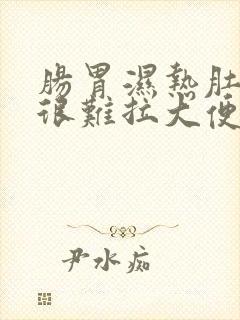 腸胃濕熱肚
很難拉大便
尹水痴